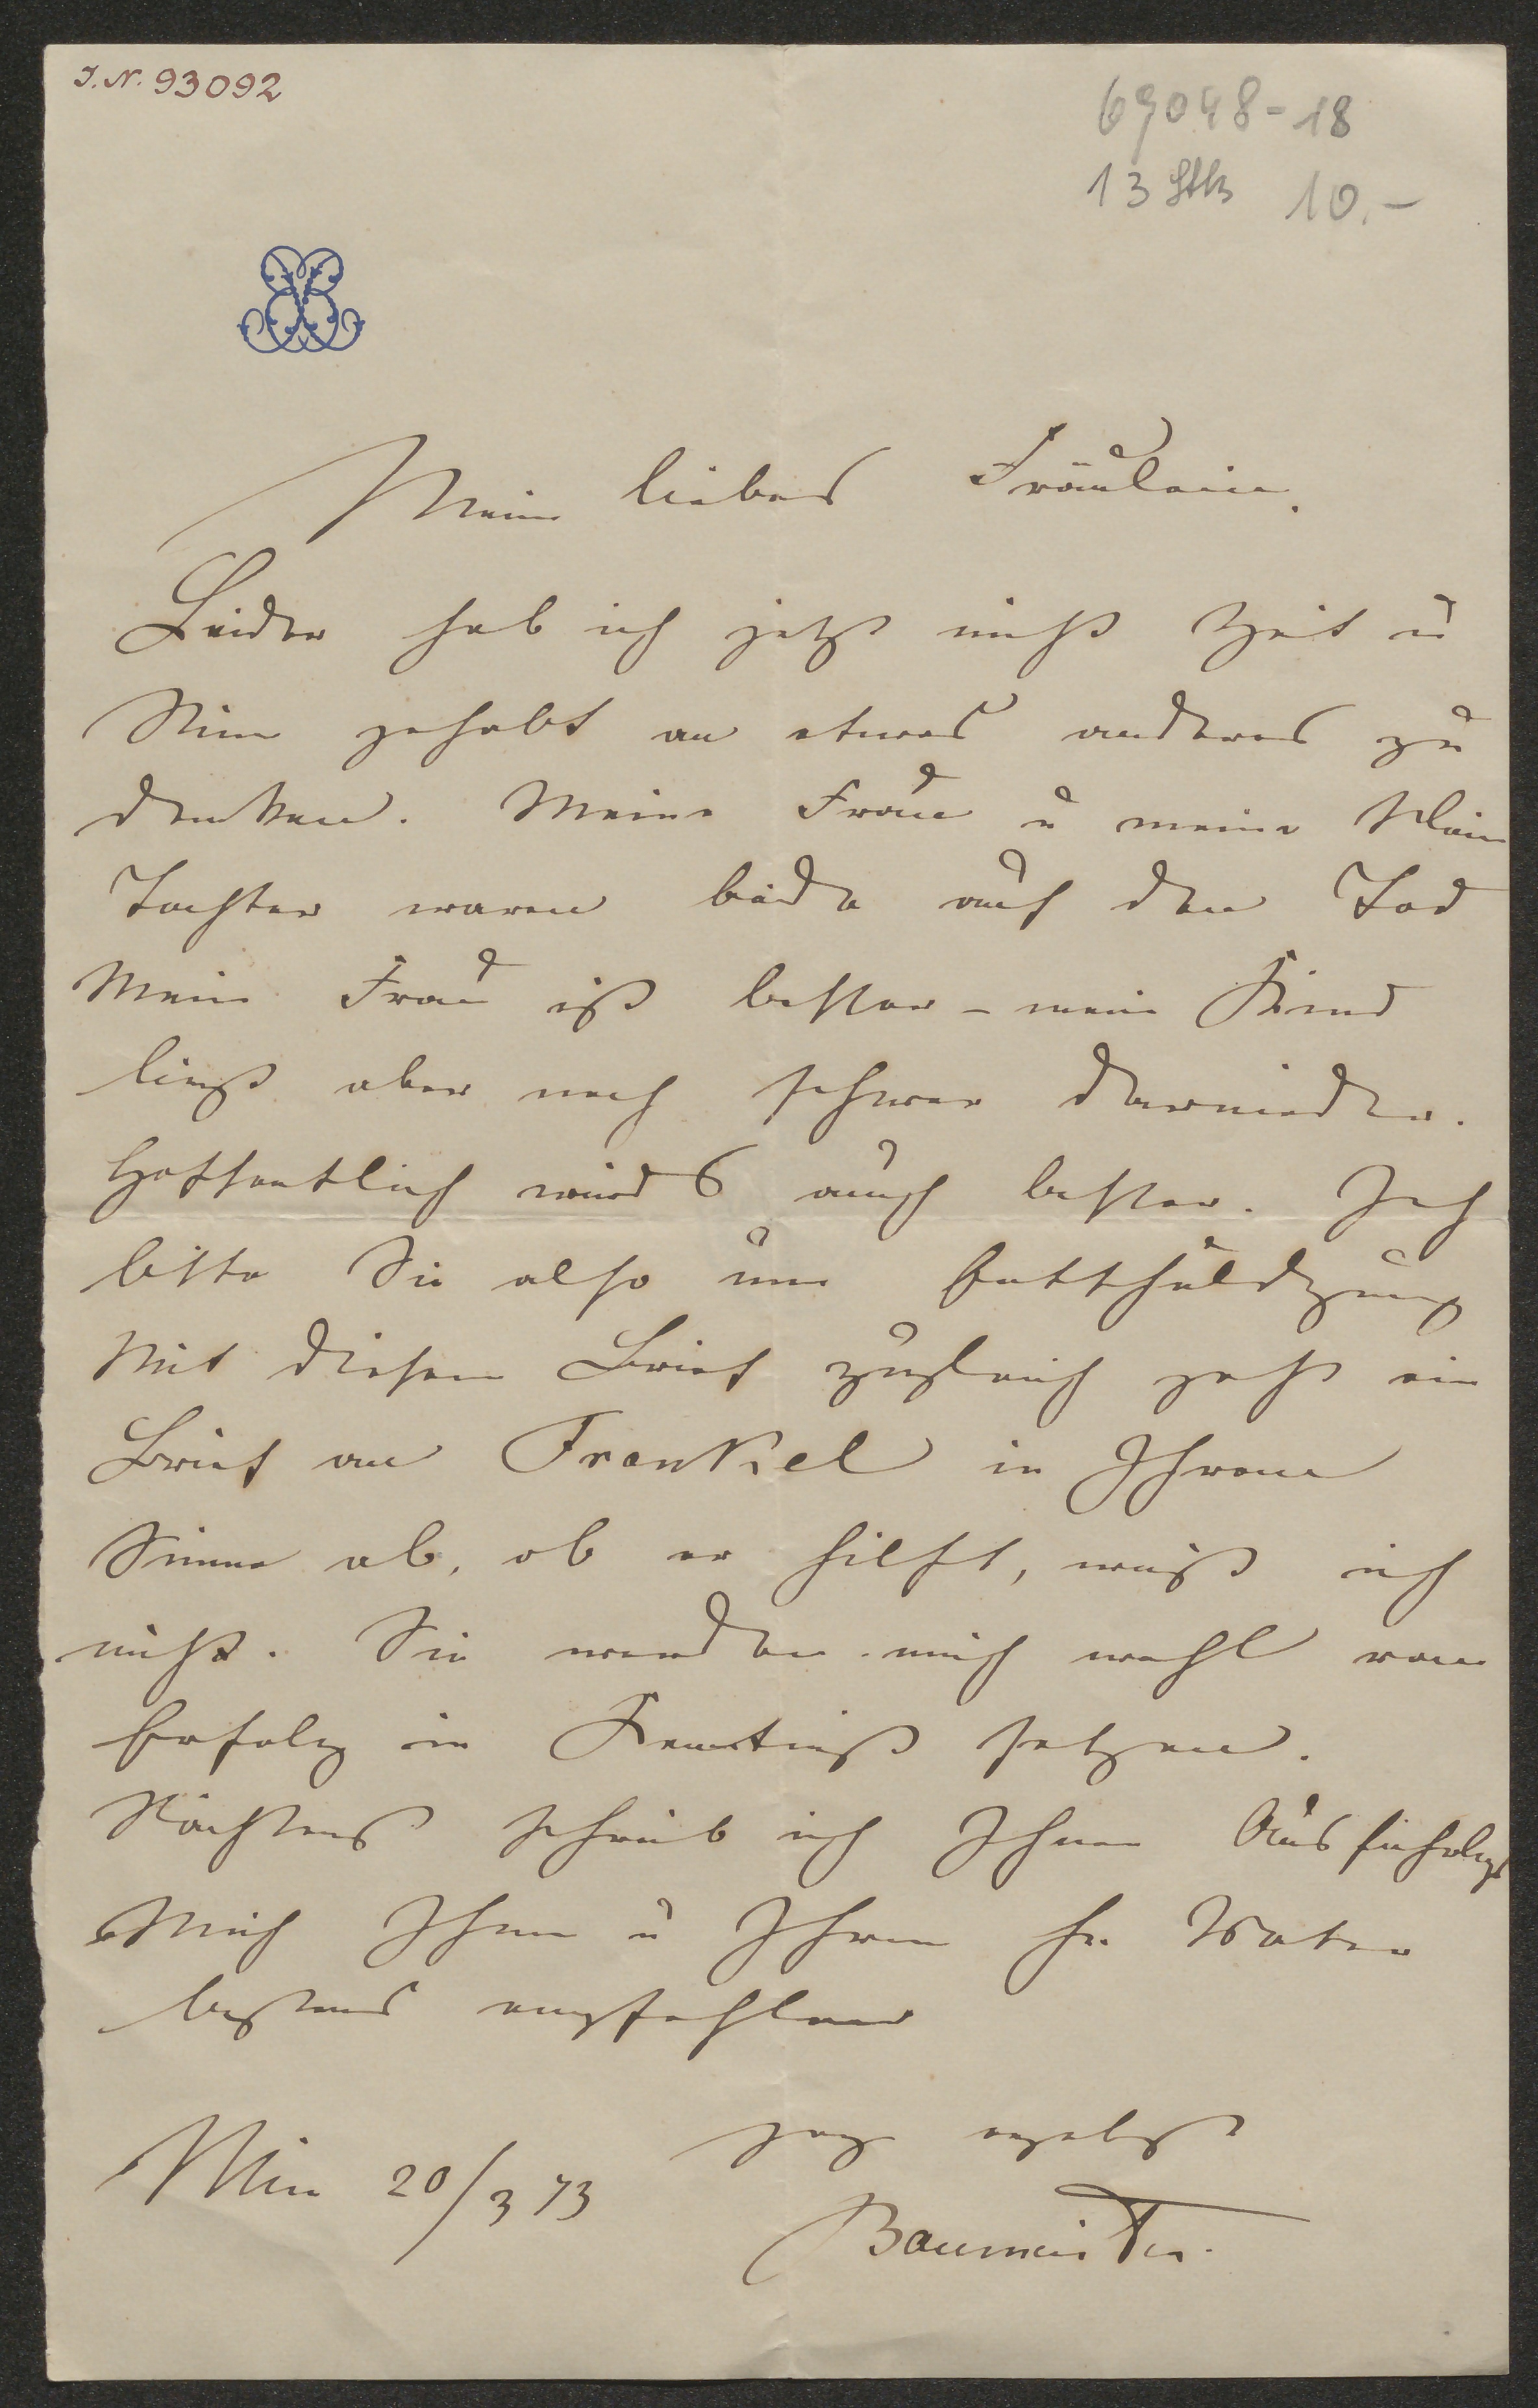 J. N. 93092
69048-18
13 Stk 10.-
Mein liebes Fräulein.
Leider hab ich jetzt nicht Zeit u
Sinn gehabt an etwas anderes zu
denken. Meine Frau u meine klein
Tochter waren beide auf den Tod
Mein Frau ist besser - mein Kind
liegt aber noch schwer darnieder.
Hoffentlich wirds auch besser. Ich
bitte Sie also um Entschuldgung
Mit diesem Brief zugleich geht ein
Brief an Frankel in Ihrem
Sinne ab, ob er hilft, weiß ich
nicht. Sie werden mich wohl vom
Erfolg in Kenntniß setzen.
Nächstens schreib ich Ihnen Ausführlich
Mich Ihnen u Ihrem Hr. Vater
bestens empfehlend
ergebst
Wien 20/3 73
Baumeister.